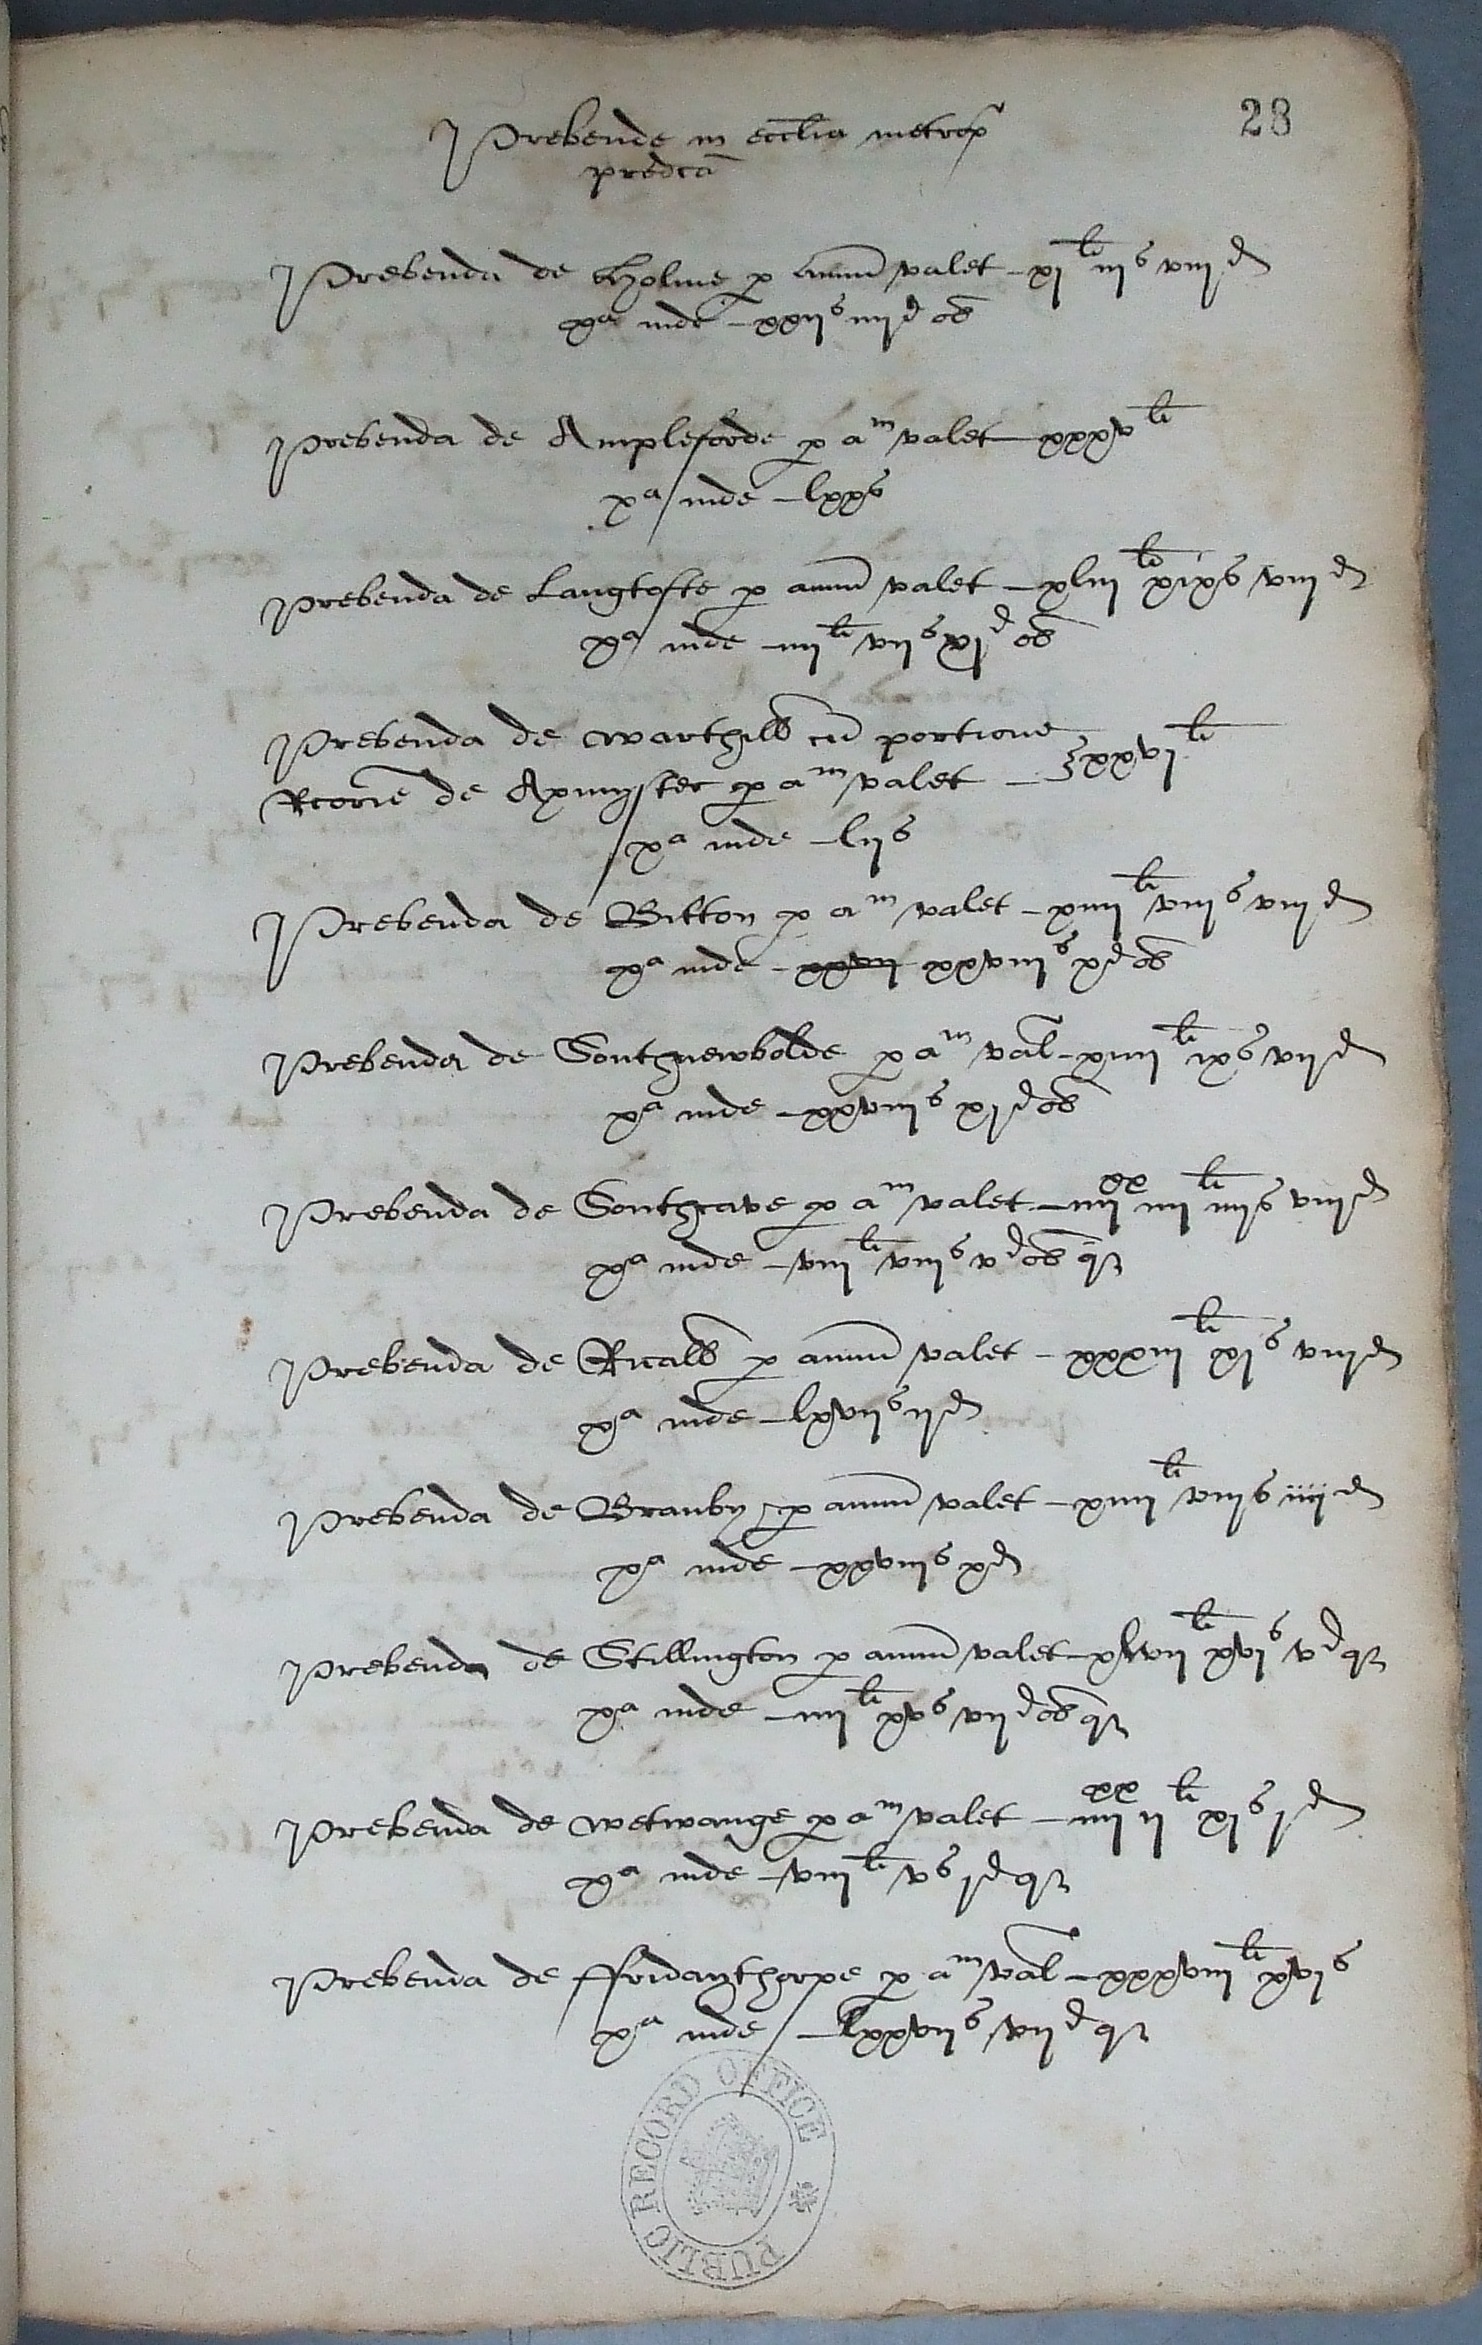 28
Prebende in ecclia metrop
predca
Prebenda de Holme p annu valet – xj li iij s viij d
xa inde – xxij s iiij d ob
Prebenda de Ampleforde p am valet – xxxv li
xa inde – lxx s
Prebenda de Langtofte p annu valet – xliij li xix s viij d
xa inde – iiij li vij s xj d ob
Prebenda de warthill cu portione
Rcorie de Axmyster p am valet – xxvj li
xa inde – lij s
Prebenda de Bitton p am valet – xiiij li viij s viij d
xa inde – xxvij xxviij s x d ob
Prebenda de Southnewbolde p am val – xiiij li ix s vij d
xa inde – xxviij s xj d ob
Prebenda de Southcave p am valet – iiij xx iiij li iiij s viij d
xa inde – viij li viij s v d ob q
Prebenda de Ricall p annu valet – xxxiij li xj s viij d
xa inde – lxvij s ij d
Prebenda de Branby p annu valet – xiiij li viij s iiij d
xa inde – xxviij s x d
Prebenda de Stillington p annu valet – xlvij li xvj s v d q
xa inde – iiij li xv s vij d ob q
Prebenda de wetwange p am valet – iiij xx ij li xj s j d
xa inde – viij li v s j d q
Prebenda de ffridaythorpe p am val – xxxviij li xvj s
xa inde – lxxvij s vij d q
PUBLIC RECORD OFFICE